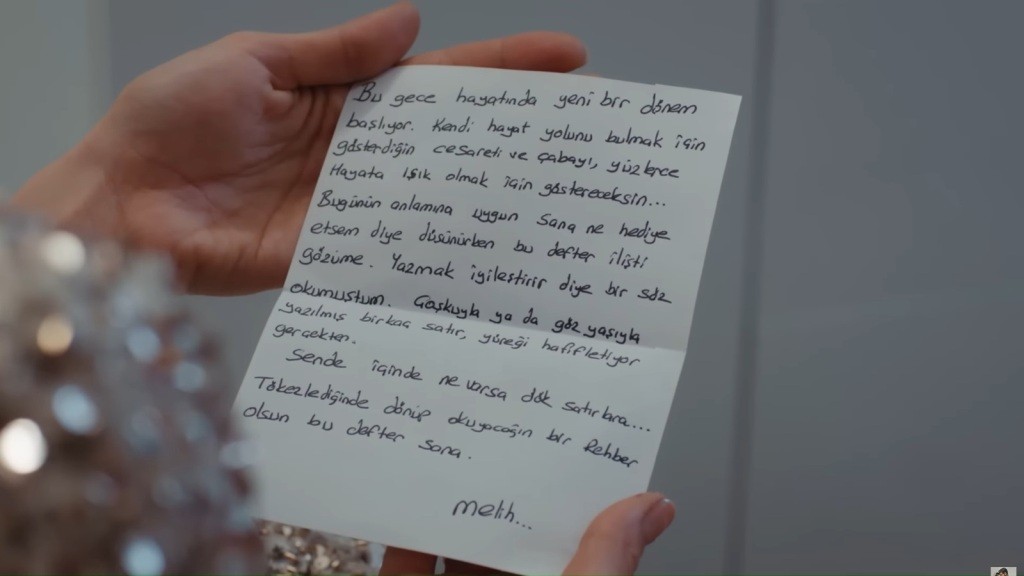 Bu gece hayatında yeni bir dönem
başlıyor. Kendi hayat yolunu bulmak için
gösterdiğin cesareti ve çabayı, yüzlerce
Hayata ışık olmak için göstereceksin...
Bugünün anlamına uygun sana ne hediye
etsem diye düşünürken bu defter ilişti
gözüme. Yazmak iyileştirir diye bir söz
okumuştum. Coşkuyla ya da göz yaşıyla
yazılmış birkaç satır, yüreği hafifletiyor
gerçekten.
Sende içinde ne varsa dök satırlara...
Tökezlediğinde dönüp okuyacağın bir Rehber
olsun bu defter sana.
Melih...